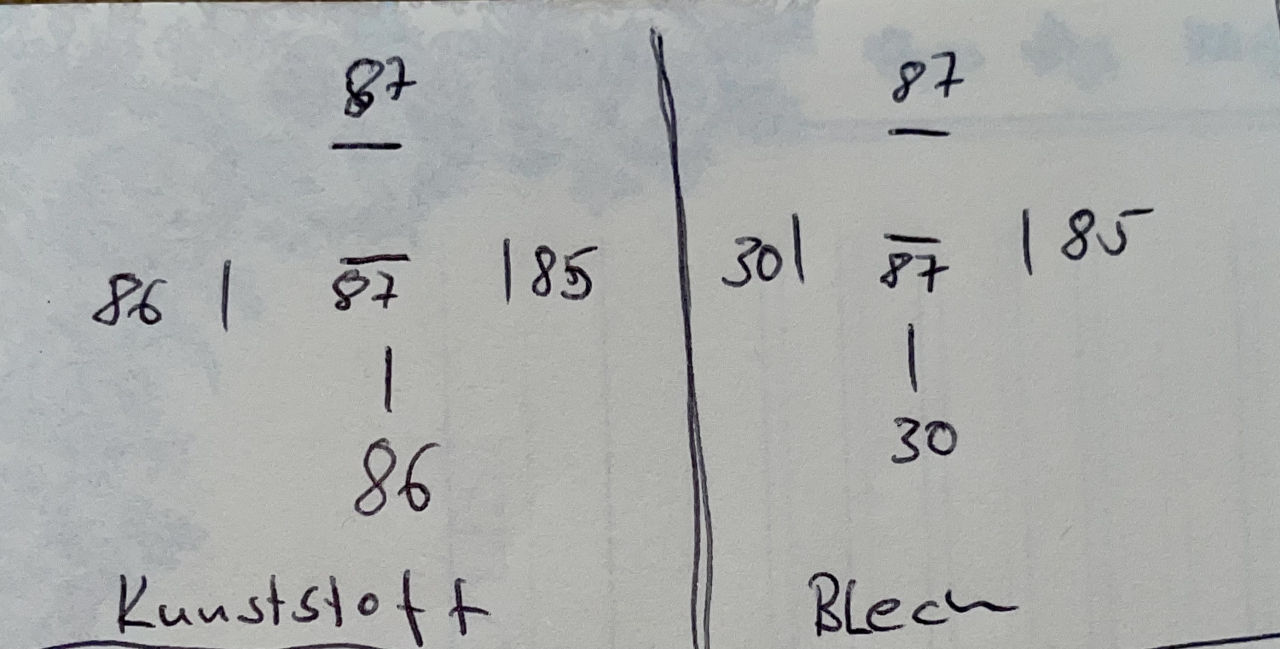 87 87
86 | 87 | 85 30 | 87 | 85
86 30
Kunststoff Blech